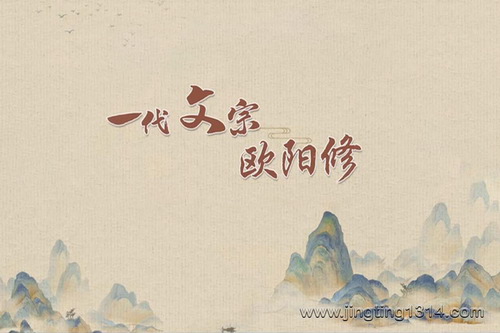 一代文宗
欧阳修
www.jingting1314.com